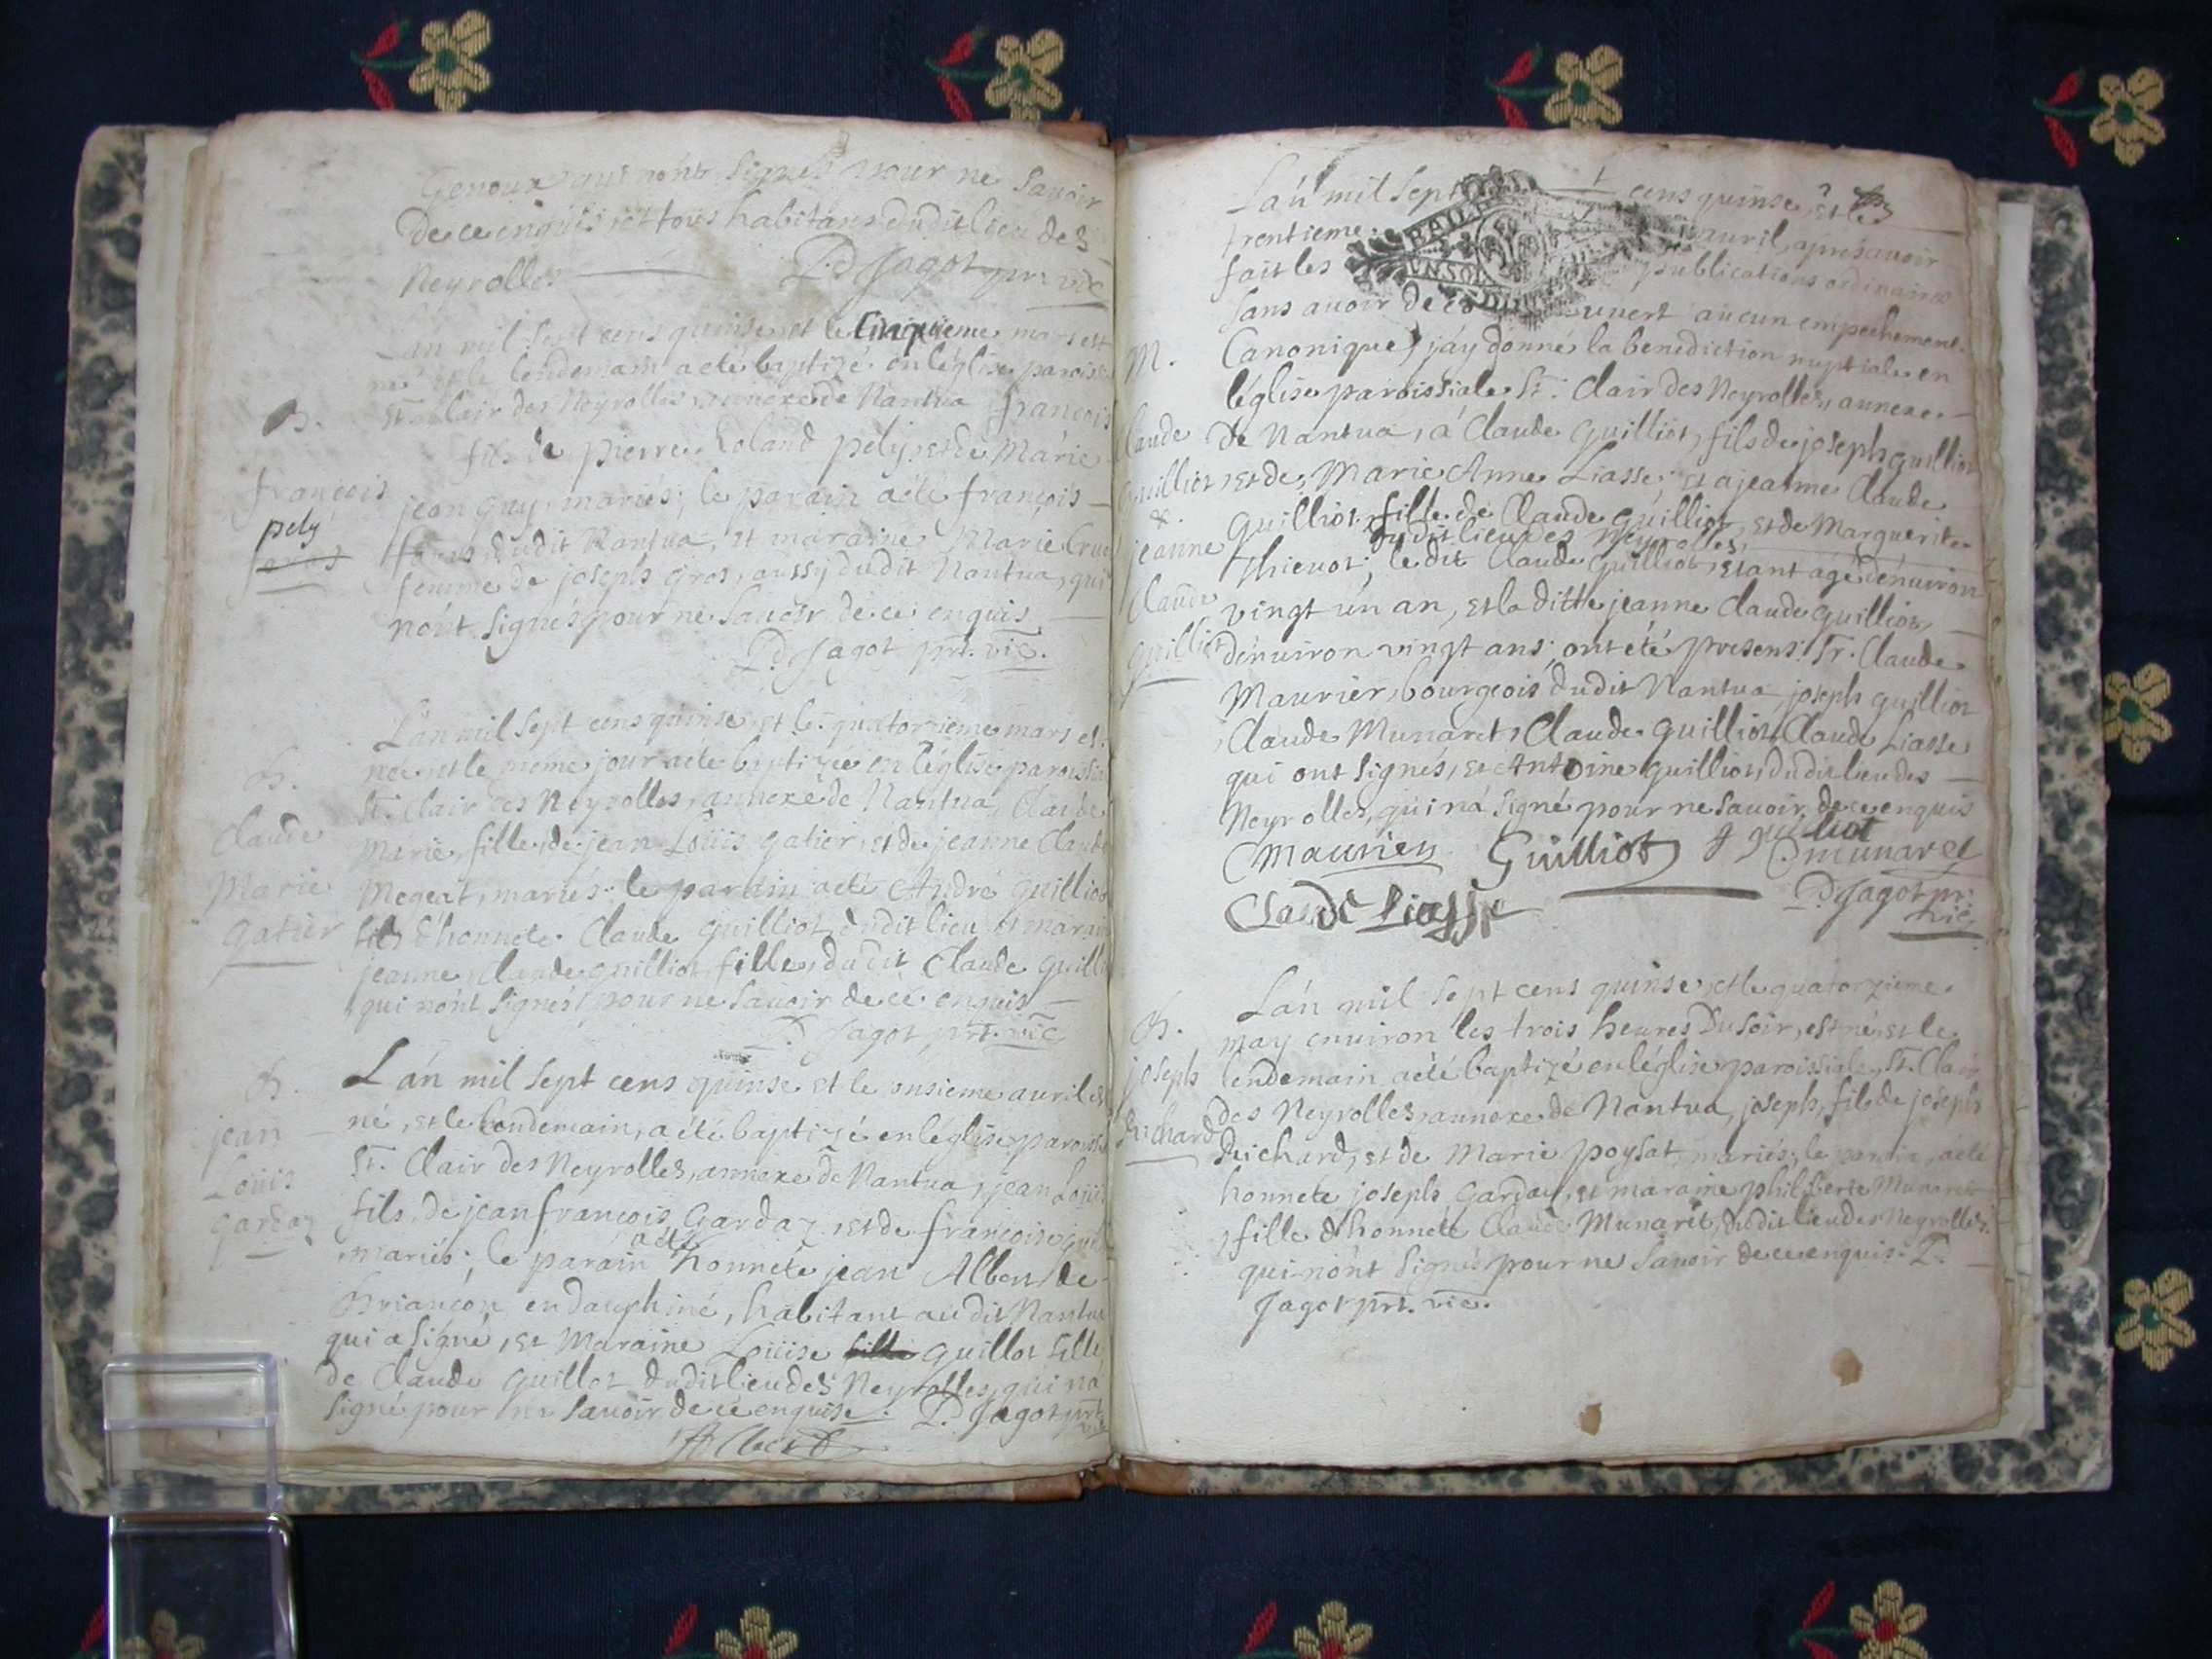 Genoux qui n'ont signés pour ne savoir
de ce enquis, et tous habitans dudit lieu des
Neyrolles P. d Jagot pr. vic
L'an mil sept cens quinse et le cinquieme mars est
né et le lendemain a eté baptizé en l'église paroiss.
B. St. Clair des Neyrolles, annexe de Nantua françois
fils de pierre Roland pely, et de Marie
françois jean guy, mariés; le parain a eté françois
pely dudit Nantua, et maraine Marie
femme de joseph gros, aussy dudit Nantua, qui
n'ont signés pour ne savoir de ce enquis
P. d Jagot prt. vic.
L'an mil sept cens quinse et le quatorzieme mars est
B. née, et le meme jour a eté baptizée en l'église paroissia
St. Clair des Neyrolles, annexe de Nantua, Claude
Claude Marie, fille de jean Loüis gatier, et de jeanne Claude
Marie Megeat, mariés; le parain a eté André guilliot
gatier fils d'honnete Claude guilliot, dudit lieu, et marain
jeanne Claude guilliot fille dudit Claude guilli
qui n'ont signés pour ne savoir de ce enquis
P. d Jagot, prt. vic
B. L'an mil sept cens quinse et le onsieme auril est
jean né, et le lendemain, a été baptizé en l'église paroissia
Loüis St. Clair des Neyrolles, annexe de Nantua, jean Loüis
gardaz fils, de jean françois gardaz, et de françoise gui
mariés; le parain a eté honnéte jean Albert, de
Briançon en dauphiné, habitant audit Nantua
qui a signé, et Maraine Loüise fille guillot fille
de Claude guillot dudit lieu des Neyrolles, qui n'a
signé pour ne savoir de ce enquise. P. d Jagot prt.
vic
Albert
L'an mil sept cens quinse, et le
trentieme auril, apres auoir
fait les publications ordinaires
PAU
UN SOL
sans auoir decouuert aucun empechement
M. Canonique, j'ay donné la benediction nuptiale en
l'église paroissiale St. Clair des Neyrolles, annexe
laude de Nantua, à Claude guilliot, fils de joseph guilliot
guilliot et de Marie Anne Liasse; et a jeanne Claude
&. guilliot, fille de Claude guilliot, et de Marguerite
dudit lieu des Neyrolles,
jeanne Thieuot; le dit Claude guilliot, etant agé d'enuiron
Claude vingt un an, et la ditte jeanne Claude guilliot,
guilliot d'enuiron vingt ans; ont été presens: Sr. Claude
Maurier, bourgeois dudit Nantua, joseph guilliot
Claude Munaret, Claude guilliot, Claude Liasse
qui ont signés, et Antoine guilliot, dudit lieu des
Neyrolles, qui n'a signé pour ne savoir de ce enquis
Maurier Guilliot J guilliot C munaret
Claude Liasse P. d Jagot pr:
vic.
L'an mil sept cens quinse, et le quatorzieme
B. may enuiron les trois heures du soir, est né, et le
joseph lendemain a été baptizé en l'église paroissiale, St. Clair
Reichard des Neyrolles, annexe de Nantua, joseph, fils de joseph
Reichard, et de Marie poysat, mariés; le parain, a eté
honnete joseph gardaz, et maraine philiberte Munaret
fille d'honneté Claude Munaret, dudit lieu des Neyrolles.
qui n'ont signés pour ne savoir de ce enquis. P.
Jagot prt. vic.